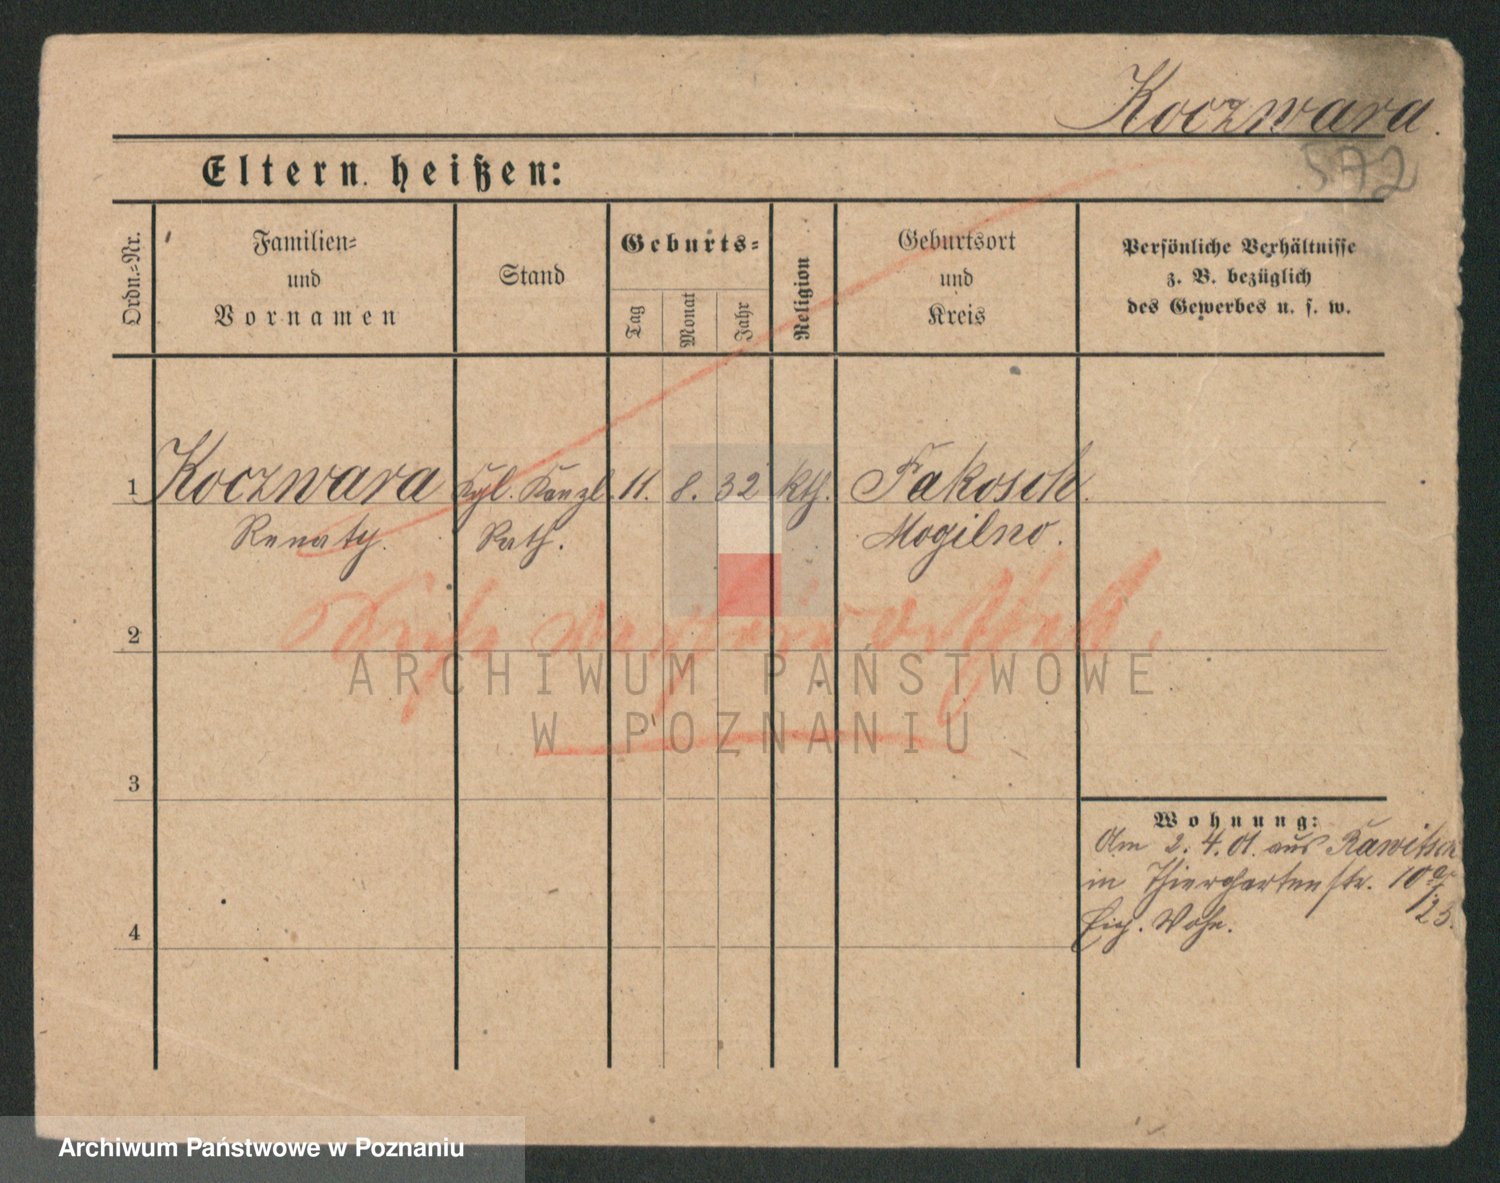 Koczwara.
572
Eltern heißen:
Ordn.=Nr.
Familien=
und
Vornamen
Stand
Geburts=
Tag
Monat
Jahr
Religion
Geburtsort
und
Kreis
Persönliche Verhältnisse
z. B. bezüglich
des Gewerbes u. s. w.
1 Koczwara Kgl. Kanzl. 11. 8. 32 kth. Pakosch.
Renaty. Rath. Mogilno.
Siehe
2
ARCHIWUM PAŃSTWOWE
W POZNANIU
3
Wohnung:
Am 2. 4. 01. aus Rawitsch
in Thiergartenstr. 10a
b/
Eig. Wohn.
4
Archiwum Państwowe w Poznaniu